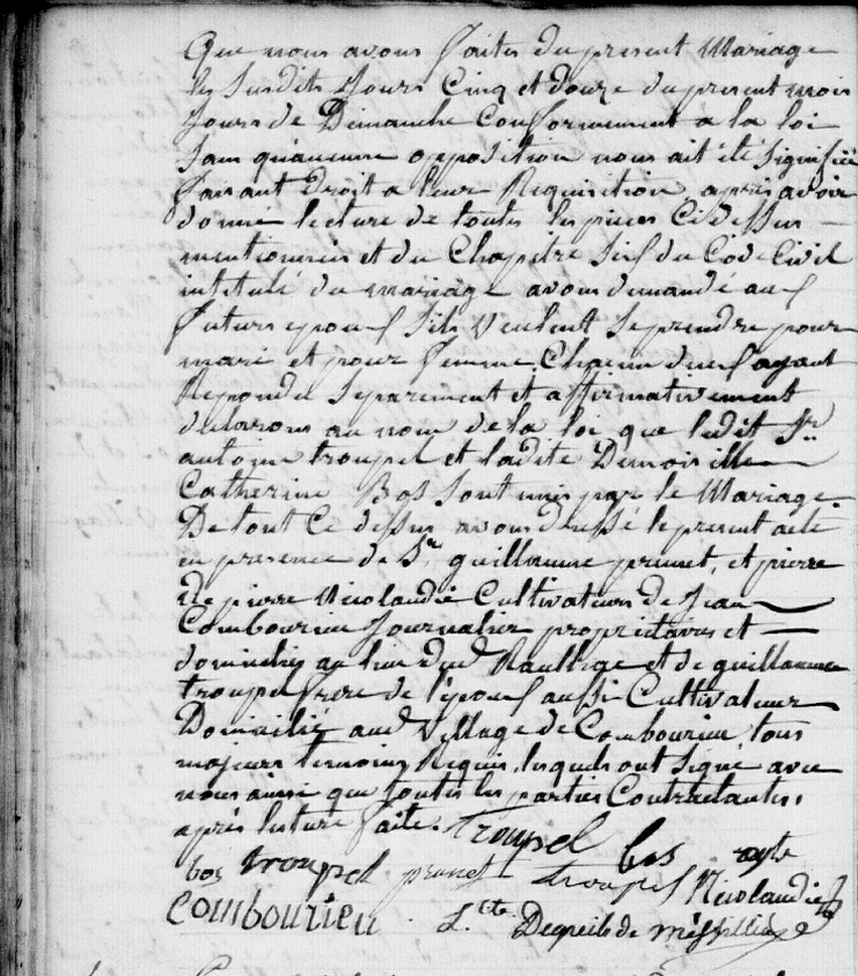 Que nous avons faites du present Mariage
les susdits Jours Cinq et douze du present mois
Jours de Dimanche Conformement a la loi
sans qu'aucune opposition nous ait été signifiée
faisant droit a leur Requisition après avoir
donné lecture de toutes les pieces Cidessus
mentionnées et du Chapitre six du Code Civil
intitulé du mariage avons demandé aux
futurs epoux s'ils veulent se prendre pour
mari et pour femme, Chacun deux ayant
Repondu separement et affirmativement
declarons au nom de la loi que ledit Sr.
antoine troupel et ladite Demoiselle
Catherine Bos sont unis par le Mariage.
De tout Ce dessus avons dressé le present acte
en presence de Sr. guillaume prunet, et pierre
de pierre Nicolaudie Cultivateurs de Jean
Combourieu Journalier propriétaires et
domiciliés au lieu dud Raulhac et de guillaume
troupel frere de l'epoux aussi Cultivateur
Domicilié aud Village de Combourieu, tous
majeurs temoins Requis, lesquels ont signé avec
nous ainsi que toutes les parties Contractantes,
après lecture faite. Troupel bos
bos troupel prunet troupel Nicolaudie
Combourieu